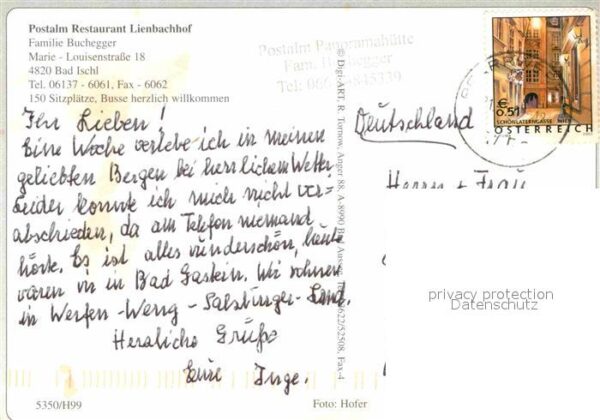 Postalm Restaurant Lienbachhof
Familie Buchegger
Marie - Louisenstraße 18
4820 Bad Ischl
Tel. 06137 - 6061, Fax - 6062
150 Sitzplätze, Busse herzlich willkommen
Postalm Panoramahütte
Fam. Buchegger
Ihr Lieben!
Eine Woche verlebe ich in meinen
geliebten Bergen bei herrlichem Wetter.
Leider konnte ich mich nicht ver=
abschieden, da am Telefon niemand
hörte. Es ist alles wunderschön, heute
waren wir in Bad Gastein. Wir wohnen
in Werfen-Weng - Salzburger-Land.
Herzliche Grüße
Eure Inge.
5350/H99
Foto: Hofer
© Digi-ART, R. Tornow, Anger 88, A-8990 Bad Aussee, Fax-4
€ 0,51
SCHÖNLATERNGASSE WIEN
ÖSTERREICH
Deutschland
Herrn + Frau
privacy protection
Datenschutz